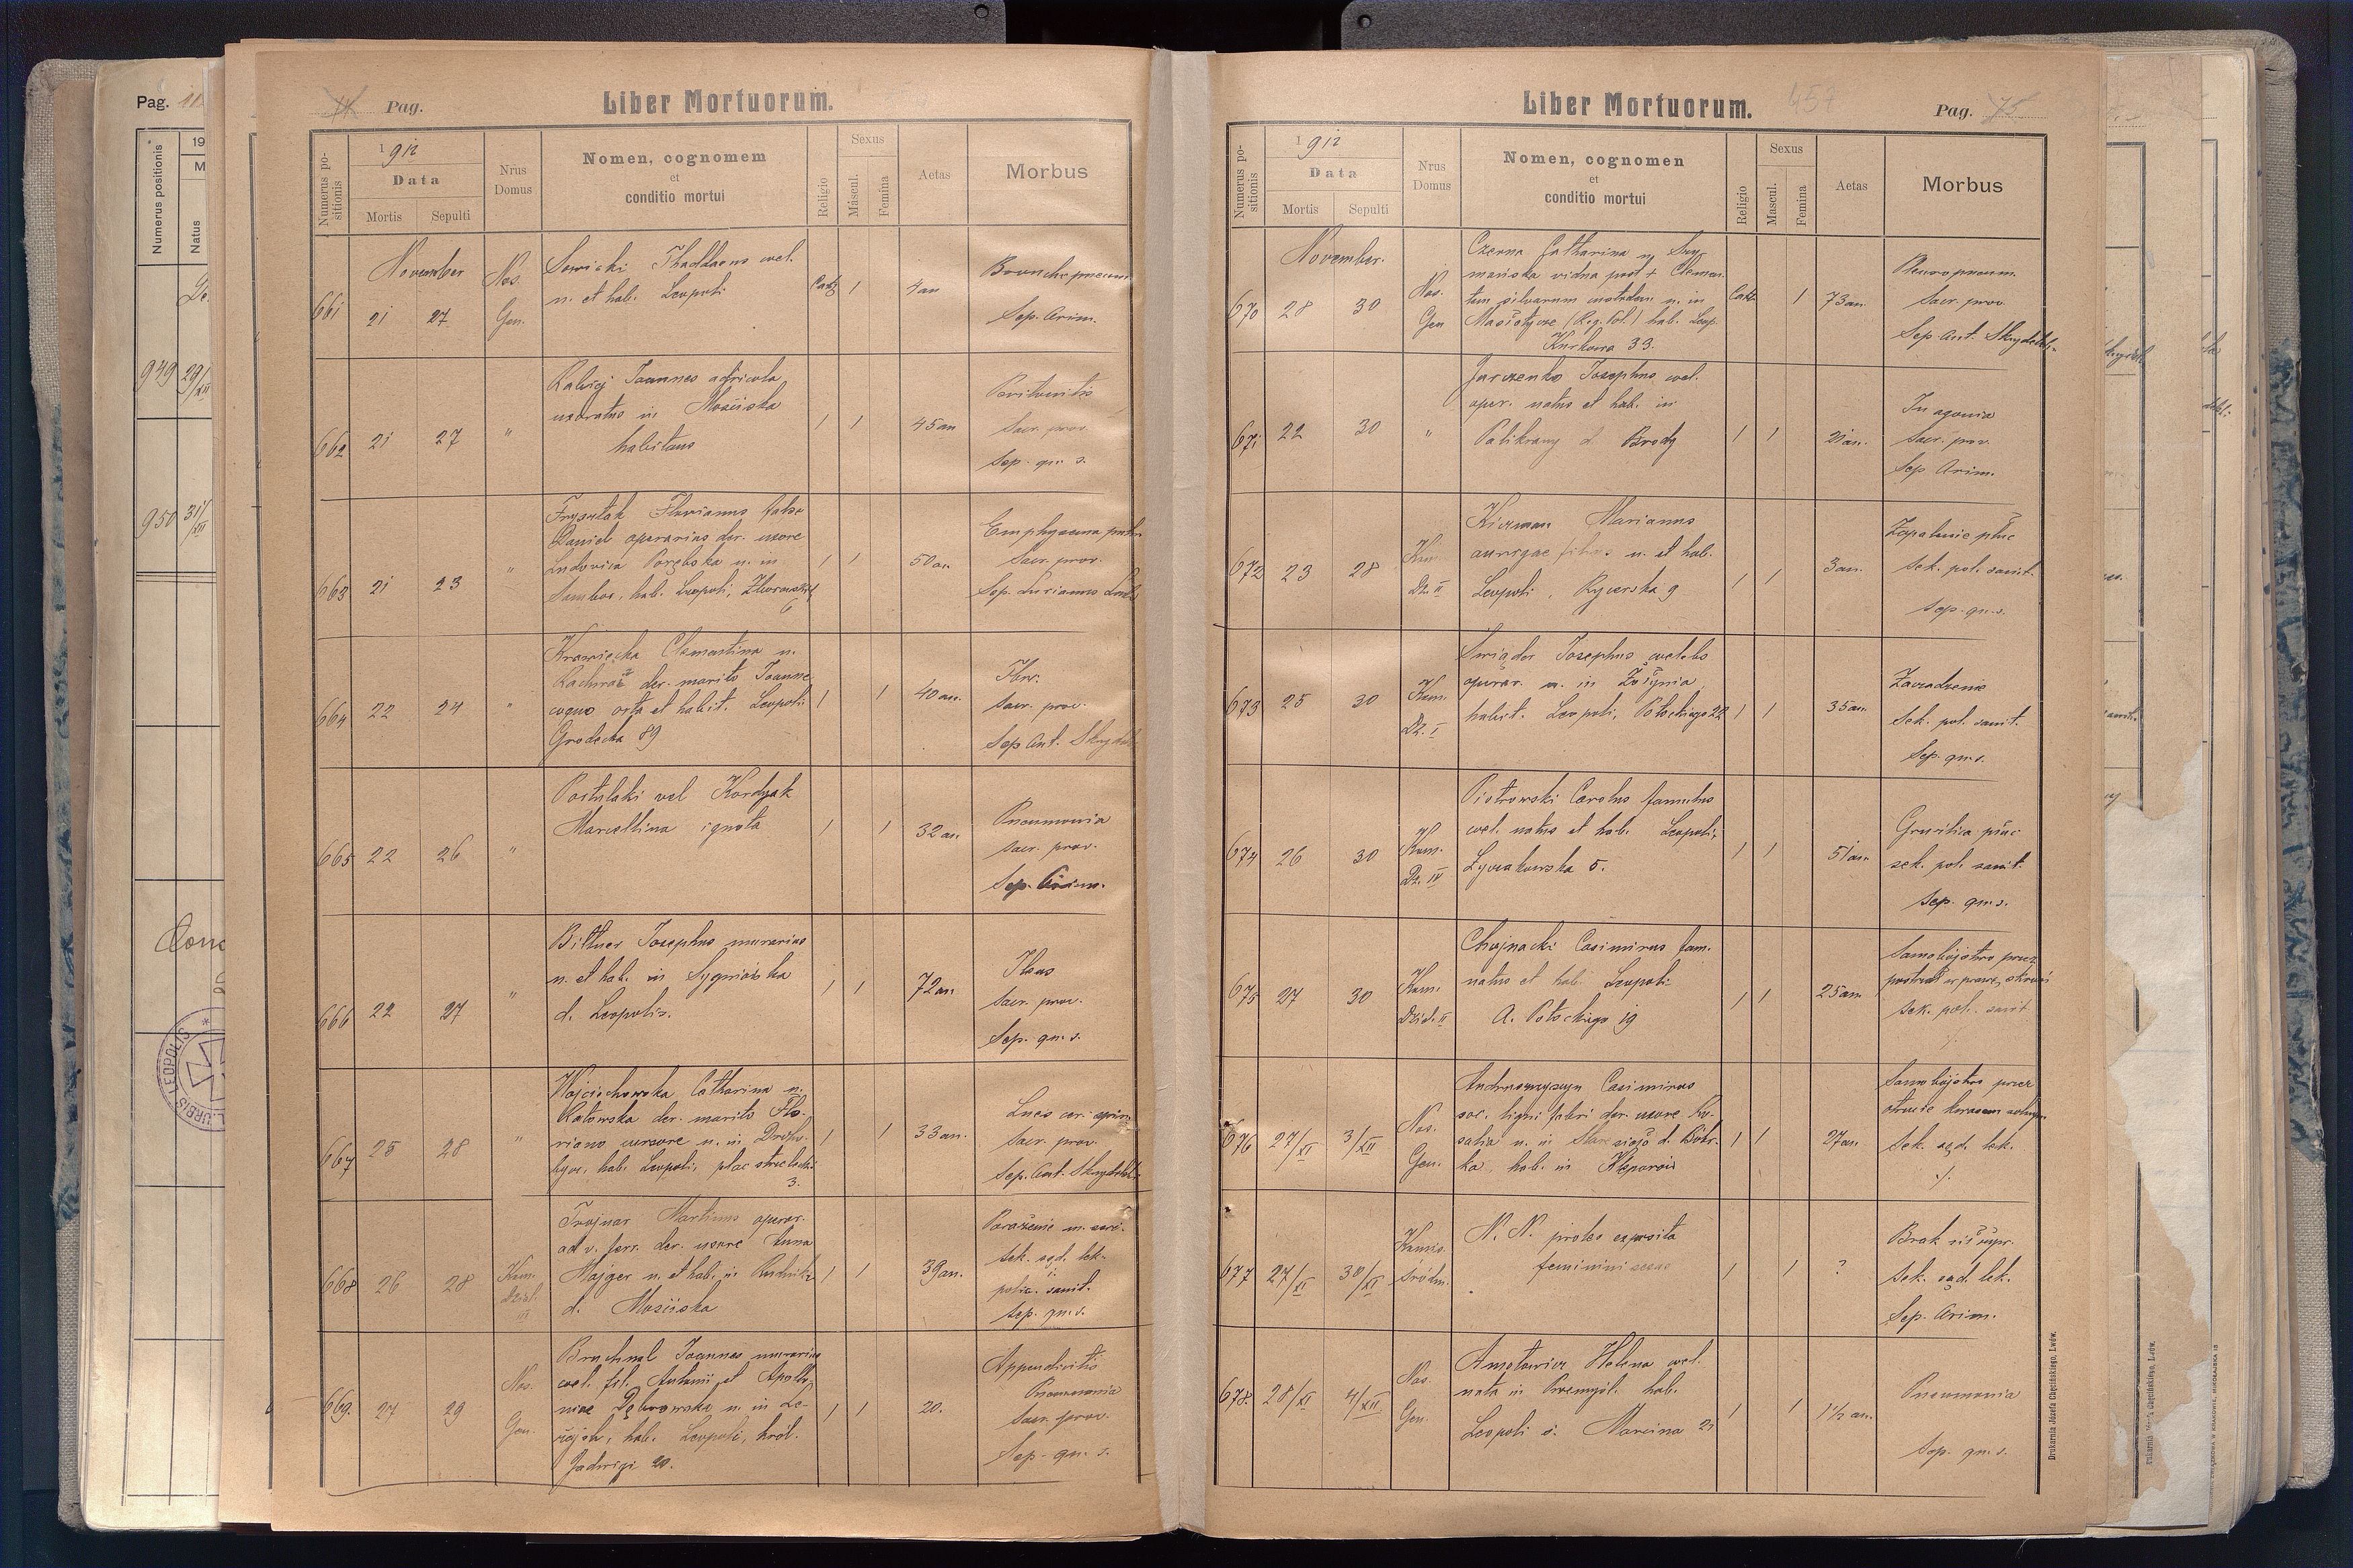 Pag. 
Numerus positionis
19
M
Natus
949 29/XII
950 31/XII
URBIS LEOPOLIS
74 Pag.
Liber Mortuorum.
Numerus positionis
1912
Data
Mortis Sepulti
Nrus Domus
Nomen, cognomem
et
conditio mortui
Religio
Sexus
Máscul.
Femina
Aetas
Morbus
November
661 21 27
Nos.
Gen.
Sawicki Thaddaeus cael.
n. et hab. Leopoli
Cath 1 4 an
Bronchopneum
Sep. Arim.
662 21 27 "
Joannes agricola
uxoratus in Mosciska
habitans
1 1 45 an
Peritonitis
Sacr. prov.
Sep. qu. s.
663 21 23 "
Frysztak Florianus false
Daniel operarius der. uxore
Ludovica Porębska n. in
Sambor, hab. Leopoli, Zborowskich
6
1 1 50 an.
Emphysema pulm
Sacr. prov.
Sep.
664 22 24 "
Krawiecka Clementina n.
der. marito Joanne
coquo orta et habit. Leopoli
Grodecka 89
1 1 40 an.
Tbc.
Sacr. prov.
Sep Ant. Skrydel
665 22 26 "
Postulski vel Kordyak
Marcellina ignota
1 1 32 an.
Pneumonia
Sacr. prov.
Sep. Arim.
666 22 27 "
Bittner Josephus murarius
n. et hab. in Sygniówka
d. Leopolis.
1 1 72 an
Ileus
Sacr. prov.
Sep. qu. s.
667 25 28 "
Wojciechowska Catharina n.
Ratowska der. marito Flo-
riano cursore n. in Droho-
bycz, hab. Leopoli, plac strzelecki
3.
1 1 33 an.
Lues
Sacr. prov.
Sep. Ant. Skrydel
668 26 28
Kom.
Dziel.
III
Trojnar Martinus operar.
ad v. ferr. der. uxore Anna
Majger n. et hab. in Rudniki
d. Mosciska
1 1 39 an.
Porażenie m. serc.
Sek. sąd. lek.
i.
polic. sanit.
Sep. qu. s.
669. 27 29
Nos.
Gen.
Bruchnal Joannes murarius
cael. fil. Antonii et Apollo-
niae Dąbrowska n. in Le-
żajsk, hab. Leopoli, król.
Jadwigi 20.
1 1 20.
Appendicitis
Pneumonia
Sacr. prov.
Sep. qu. s.
Liber Mortuorum. 457
Pag. 75
Numerus positionis
1912
Data
Mortis Sepulti
Nrus Domus
Nomen, cognomen
et
conditio mortui
Religio
Sexus
Mascul.
Femina
Aetas
Morbus
November.
670 28 30
Nos.
Gen
Czerna Catharina n. Szy-
mańska vidua post + Clemen-
tem silvarum custodem n. in
(Reg. Pol.) hab. Leop.
Kurkowa 33.
Cath. 1 73 an.
Pleuropneum.
Sacr. prov.
Sep. Ant. Skrydel
671 22 30 "
Jarczenko Josephus cael.
oper. natus et hab. in
Palikrowy d. Brody
1 1 21 an.
In agonia
Sacr. prov.
Sep Arim.
672 23 28
Kom.
Dz. II
Kiczman Marianus
aurigae filius n. et hab.
Leopoli, Rycerska 9
1 1 3 an.
Zapalenie płuc
Sek. pol. sanit.
Sep. qu. s.
673 25 30
Kom.
Dz. I
Świąder Josephus caelebs
operar. n. in Żołynia
habit. Leopoli, Potockiego 22
1 1 35 an.
Zaczadzenie
Sek. pol. sanit.
Sep. qu. s.
674 26 30
Kom.
Dz. IV
Piotrowski Carolus famulus
cael. natus et hab. Leopoli,
Łyczakowska 5.
1 1 51 an.
Gruźlica płuc
sek. pol. sanit.
Sep. qu. s.
675 27 30
Kom.
Dziel. II
Chojnacki Casimirus fam.
natus et hab. Leopoli
A. Potockiego 19
1 1 25 an
Samobójstwo przez
postrzał w prawą skroń
sek. pol. sanit
676 27/XI 3/XII
Nos.
Gen.
Casimirus
soc. ligni fabri der. uxore Ro-
salia n. in Stare sioło d. Bóbr-
ka, hab. in Kleparów
1 1 27 an.
Samobójstwo przez
otrucie kwasem solnym
Sek. sąd. lek.
./.
677 27/XI 30/XI
Komis.
śródm.
N. N. proles exposita
feminini sexus
1 1 ?
Brak
sek. sąd. lek.
Sep. Arim.
678. 28/XI 4/XII
Nos.
Gen.
Helena cael.
nata in Przemyśl. hab.
Leopoli ś. Marcina 21
1 1 1 1/2 an.
Pneumonia
Sep. qu. s.
Drukarnia Józefa Chęcińskiego, Lwów.